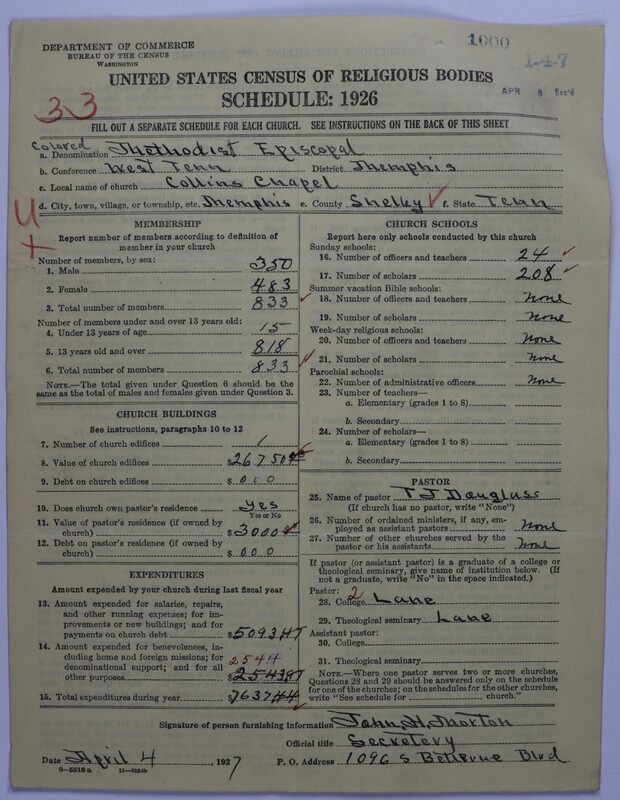 1000
1-47
APR 8 Rec'd
DEPARTMENT OF COMMERCE
BUREAU OF THE CENSUS
WASHINGTON
UNITED STATES CENSUS OF RELIGIOUS BODIES
SCHEDULE: 1926
33
FILL OUT A SEPARATE SCHEDULE FOR EACH CHURCH. SEE INSTRUCTIONS ON THE BACK OF THIS SHEET
Colored
a. Denomination Methodist Episcopal
b. Conference West Tenn District Memphis
c. Local name of church Collins Chapel
d. City, town, village, or township, etc. Memphis e. County Shelby f. State Tenn
U
MEMBERSHIP
Report number of members according to definition of
member in your church
Number of members, by sex:
1. Male 350
2. Female 483
3. Total number of members 833
Number of members under and over 13 years old:
4. Under 13 years of age 15
5. 13 years old and over 818
6. Total number of members 833
NOTE.—The total given under Question 6 should be
the same as the total of males and females given under Question 3.
CHURCH BUILDINGS
See instructions, paragraphs 10 to 12
7. Number of church edifices 1
8. Value of church edifices $267500
9. Debt on church edifices $000
10. Does church own pastor's residence? Yes
Yes or No
11. Value of pastor's residence (if owned by
church) $3000
12. Debt on pastor's residence (if owned by
church) $000
EXPENDITURES
Amount expended by your church during last fiscal year
13. Amount expended for salaries, repairs,
and other running expenses; for im-
provements or new buildings; and for
payments on church debt $5093
14. Amount expended for benevolences, in-
cluding home and foreign missions; for
denominational support; and for all
other purposes $2543
2544
15. Total expenditures during year $7637
CHURCH SCHOOLS
Report here only schools conducted by this church
Sunday schools:
16. Number of officers and teachers 24
17. Number of scholars 208
Summer vacation Bible schools:
18. Number of officers and teachers None
19. Number of scholars None
Week-day religious schools:
20. Number of officers and teachers None
21. Number of scholars None
Parochial schools:
22. Number of administrative officers None
23. Number of teachers—
a. Elementary (grades 1 to 8)
b. Secondary
24. Number of scholars—
a. Elementary (grades 1 to 8)
b. Secondary
PASTOR
25. Name of pastor T J Douglass
(If church has no pastor, write "None")
26. Number of ordained ministers, if any, em-
ployed as assistant pastors None
27. Number of other churches served by the
pastor or his assistants None
If pastor (or assistant pastor) is a graduate of a college or
theological seminary, give name of institution below. (If
not a graduate, write "No" in the space indicated.)
Pastor: 2
28. College Lane
29. Theological seminary Lane
Assistant pastor:
30. College
31. Theological seminary
NOTE.—Where one pastor serves two or more churches,
Questions 28 and 29 should be answered only on the schedule
for one of the churches; on the schedules for the other churches,
write "See schedule for church."
Signature of person furnishing information John H. Morton
Official title Secretery
Date April 4 1927 P. O. Address 1096 S Bellevue Blvd